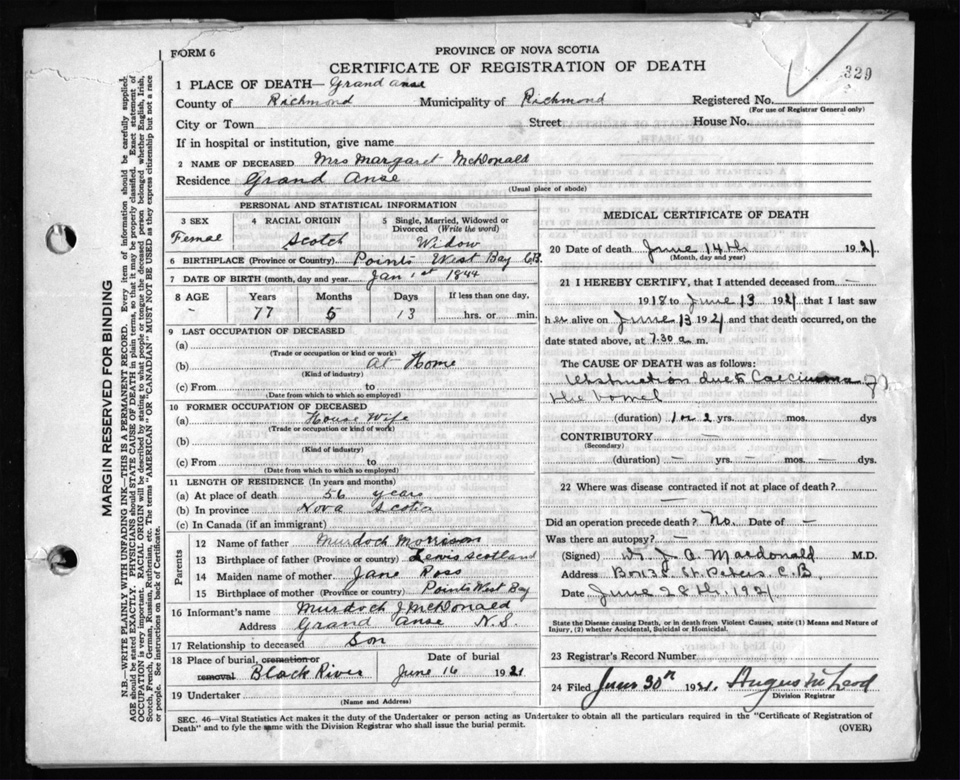 FORM 6
PROVINCE OF NOVA SCOTIA
CERTIFICATE OF REGISTRATION OF DEATH
329
1 PLACE OF DEATH—Grand Anse
County of Richmond Municipality of Richmond Registered No.
(For use of Registrar General only)
City or Town Street House No.
If in hospital or institution, give name
2 NAME OF DECEASED Mrs Margaret McDonald
Residence Grand Anse
(Usual place of abode)
PERSONAL AND STATISTICAL INFORMATION
3 SEX 4 RACIAL ORIGIN 5 Single, Married, Widowed or Divorced (Write the word)
Femae Scotch Widow
6 BIRTHPLACE (Province or Country) Points West Bay C.B.
7 DATE OF BIRTH (month, day and year) Jan 1st 1844
8 AGE Years Months Days If less than one day,
- 77 5 13 hrs. or min.
9 LAST OCCUPATION OF DECEASED
(a)
(Trade or occupation or kind or work)
(b) At Home
(Kind of industry)
(c) From to
(Date from which to which so employed)
10 FORMER OCCUPATION OF DECEASED
(a) House Wife
(Trade or occupation or kind of work)
(b)
(Kind of industry)
(c) From to
(Date from which to which so employed)
11 LENGTH OF RESIDENCE (In years and months)
(a) At place of death 56 years
(b) In province Nova Scotia
(c) In Canada (if an immigrant)
Parents
12 Name of father Murdoch Morrison
13 Birthplace of father (Province or country) Lewis Scotland
14 Maiden name of mother Jane Ross
15 Birthplace of mother (Province or country) Points West Bay
16 Informant's name Murdoch J McDonald
Address Grand Anse N.S.
17 Relationship to deceased Son
18 Place of burial, cremation or removal Black River
Date of burial June 16 1921
19 Undertaker
(Name and Address)
MEDICAL CERTIFICATE OF DEATH
20 Date of death June 14th 1921
(Month, day and year)
21 I HEREBY CERTIFY, that I attended deceased from
1918 to June 13 1921 that I last saw
her alive on June 13 1921 and that death occurred, on
the date stated above, at 7.30 a. m.
The CAUSE OF DEATH was as follows:
Obstruction due to Carcinoma of
the bowel
(duration) 1 or 2 yrs. mos. dys
CONTRIBUTORY —
(Secondary)
(duration) — yrs. — mos. — dys.
22 Where was disease contracted if not at place of death?
—
Did an operation precede death? No. Date of —
Was there an autopsy? —
(Signed) J. A. Macdonald M.D.
Address St. Peters C.B.
Date June 28th 1921
State the Disease causing Death, or in death from Violent Causes, state (1) Means and Nature of Injury, (2) whether Accidental, Suicidal or Homicidal.
23 Registrar's Record Number
24 Filed June 30th 1921. Angus McLeod
Division Registrar
SEC. 46—Vital Statistics Act makes it the duty of the Undertaker or person acting as Undertaker to obtain all the particulars required in the "Certificate of Registration of
Death" and to fyle the same with the Division Registrar who shall issue the burial permit. (OVER)
MARGIN RESERVED FOR BINDING
N.B.—WRITE PLAINLY WITH UNFADING INK—THIS IS A PERMANENT RECORD. Every item of information should be carefully supplied.
AGE should be stated EXACTLY. PHYSICIANS should STATE CAUSE OF DEATH in plain terms, so that it may be properly classified. Exact statement of
OCCUPATION is very important. RACIAL ORIGIN will be described by stating to what people or tongue the deceased person belonged whether English, Irish,
Scotch, French, German, Russian, Ruthenian, etc. The terms "AMERICAN" OR "CANADIAN" MUST NOT BE USED as they express citizenship but not a race
or people. See instructions on back of Certificate.